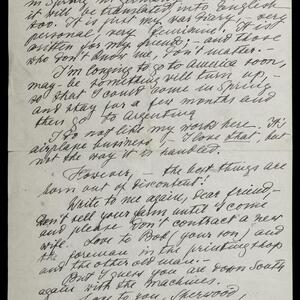 in Spring
it will be translated into English
too. It is just my war diary, very
personal, very feminine, - It is
written for my friends; - and those
who don't know me, don't matter. -
I'm longing to go to America soon,
may-be something will turn up, -
so that I could come in Spring
and stay for a few months and
then go to Argentina
I do not like my work here. It's
airplane business, - I love that, but
not the way it is handled.
However, - the best things are
born out of discontent!
Write to me again, dear friend -
Don't tell your until I come
and please Don't contract a new
wife. Love to Bob (your son) and
the foreman in the printing shop
and the other old man. -
But I guess you are down South
again with the machines.
to you, Sherwood,